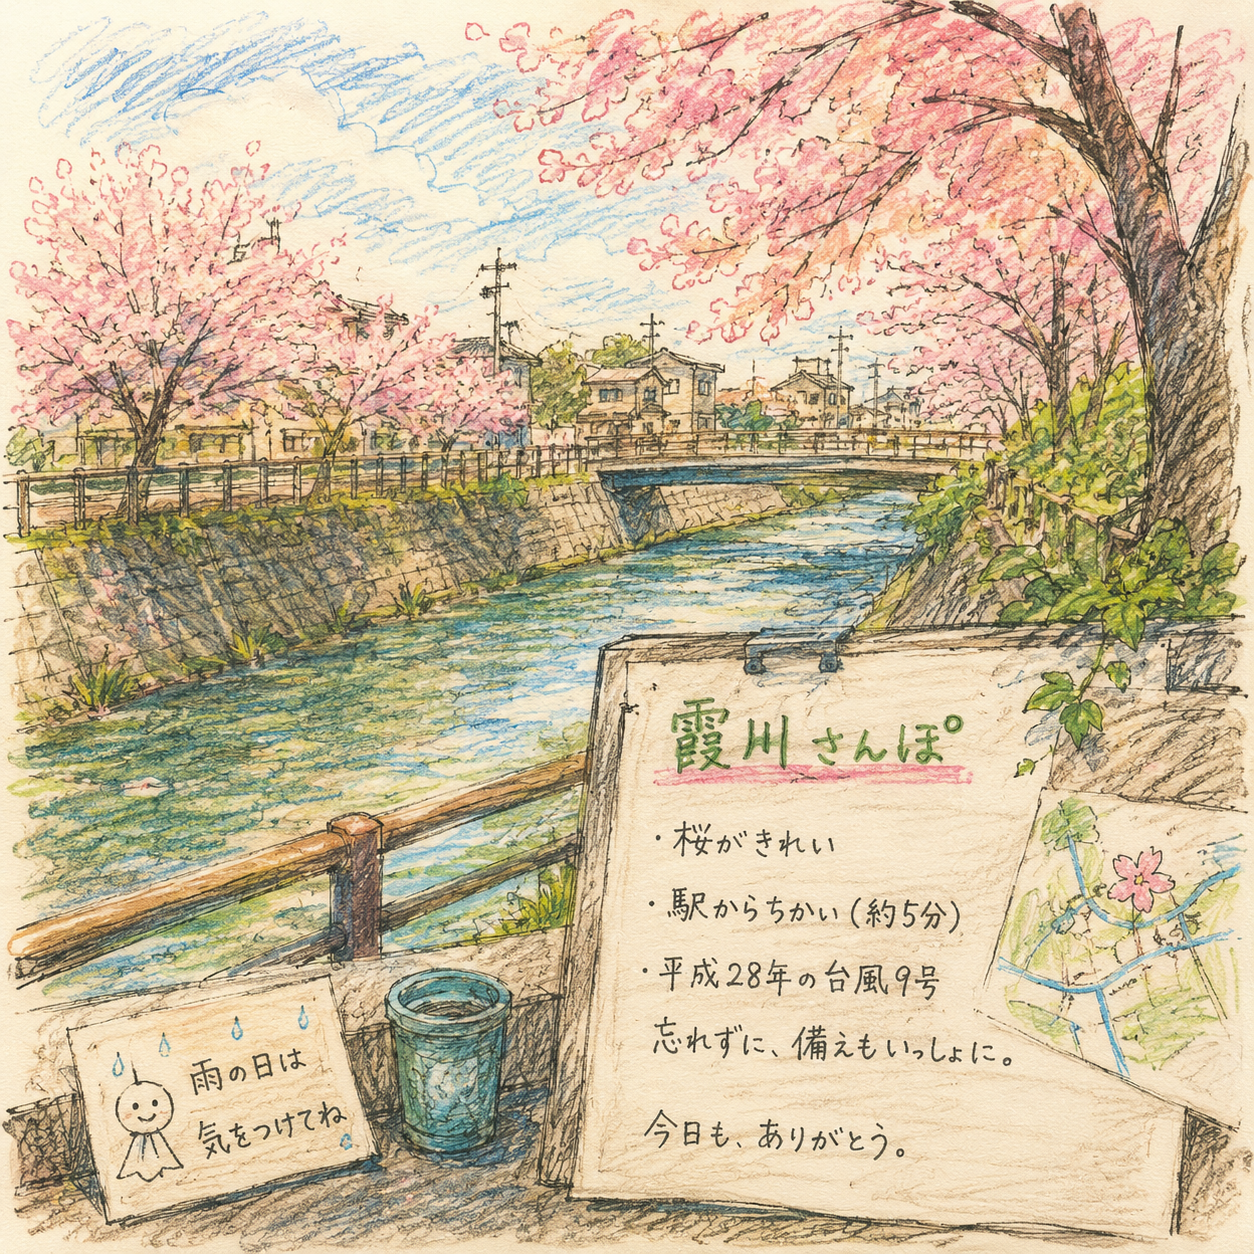 霞川さんぽ
・桜がきれい
・駅からちかい(約5分)
・平成28年の台風9号
忘れずに、備えもいっしょに。
今日も、ありがとう。
雨の日は
気をつけてね